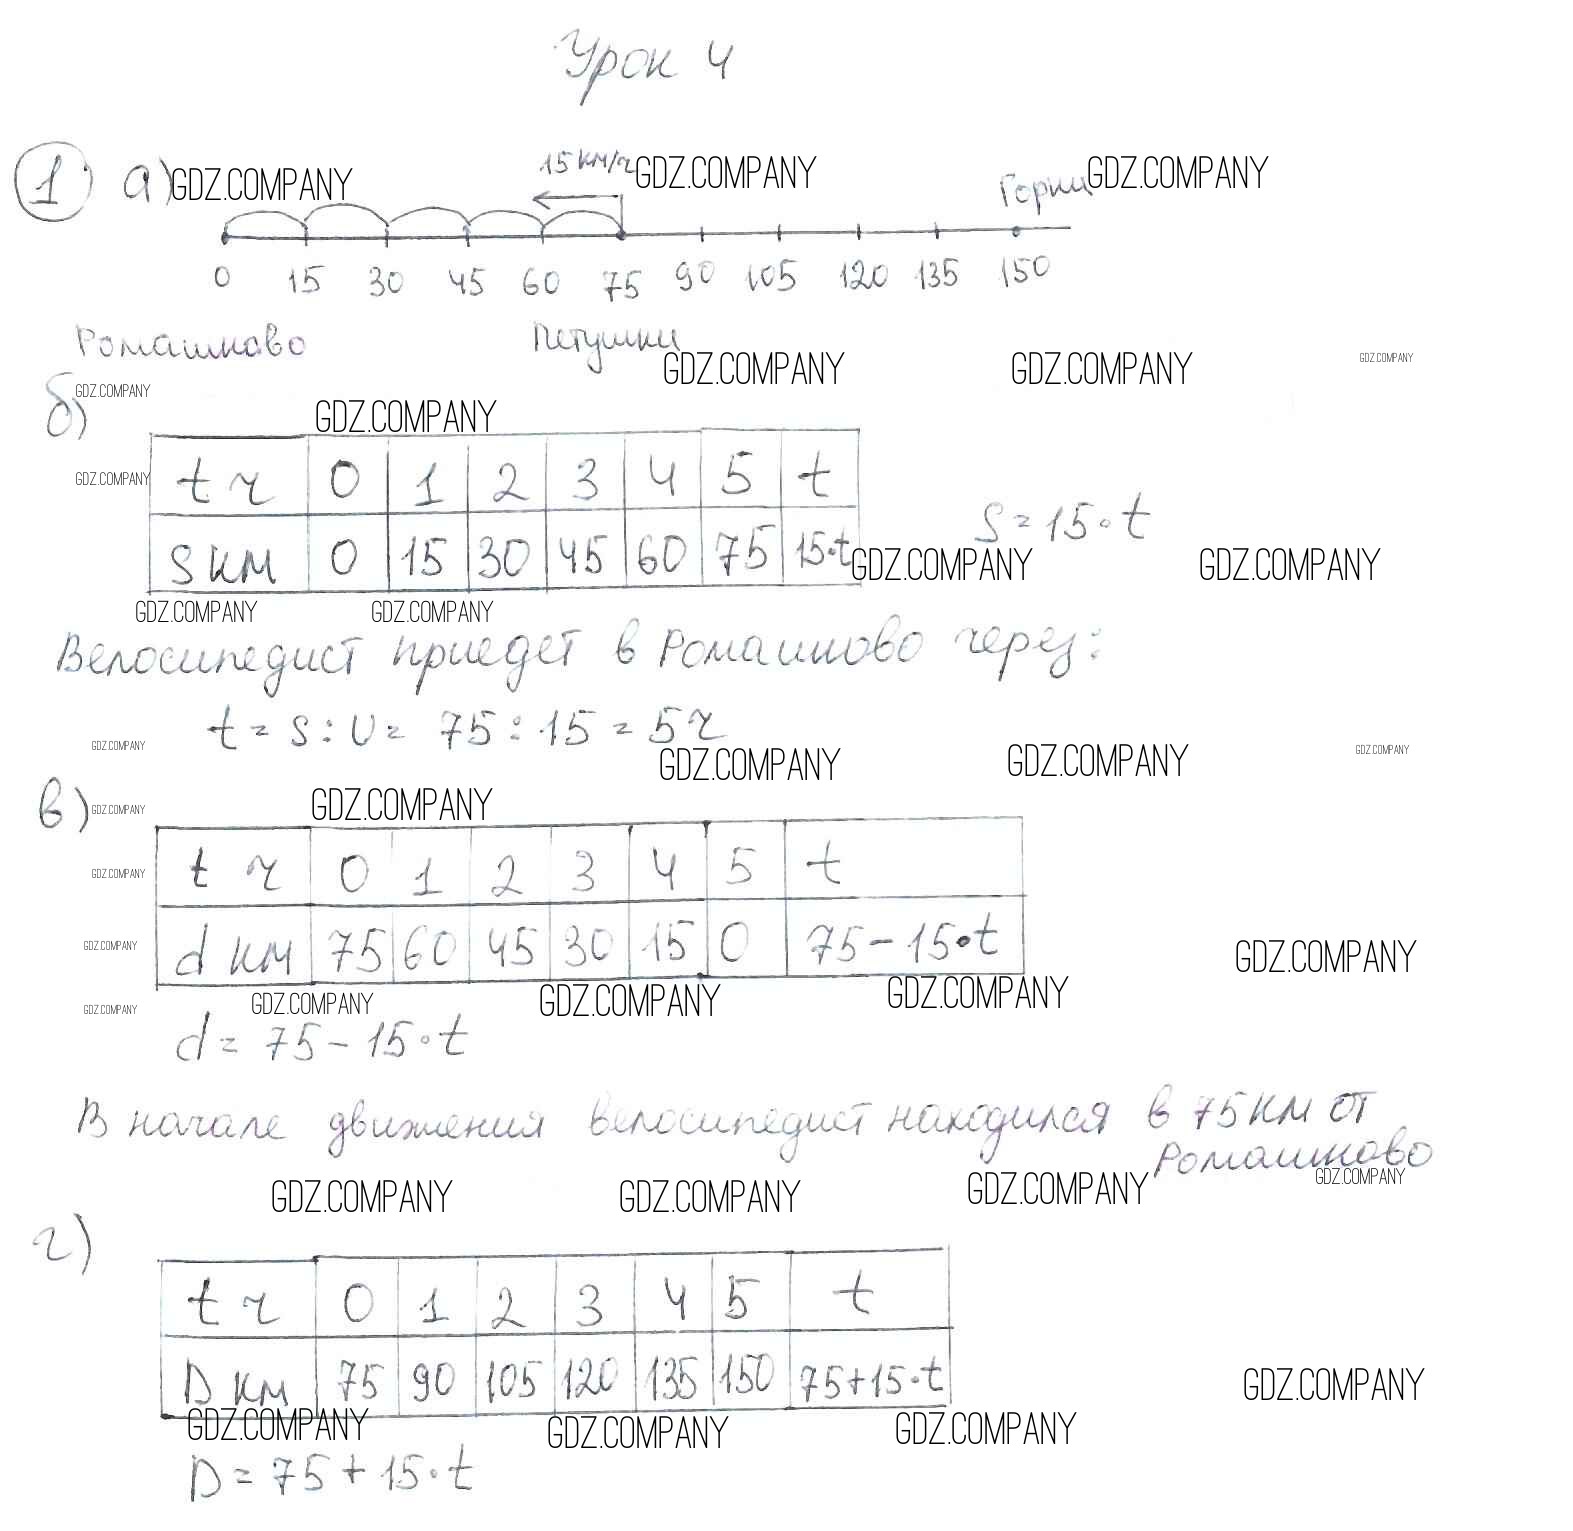 Урок 4
1 а) GDZ.COMPANY 15 км/ч GDZ.COMPANY Горки GDZ.COMPANY
0 15 30 45 60 75 90 105 120 135 150
Ромашково Петушки
GDZ.COMPANY GDZ.COMPANY GDZ.COMPANY
б) GDZ.COMPANY GDZ.COMPANY
GDZ.COMPANY t ч 0 1 2 3 4 5 t
S = 15·t
S км 0 15 30 45 60 75 15·t GDZ.COMPANY GDZ.COMPANY
GDZ.COMPANY GDZ.COMPANY
Велосипедист приедет в Ромашково через:
t = S : V = 75 : 15 = 5 ч
GDZ.COMPANY GDZ.COMPANY GDZ.COMPANY GDZ.COMPANY
в) GDZ.COMPANY GDZ.COMPANY
GDZ.COMPANY t ч 0 1 2 3 4 5 t
GDZ.COMPANY d км 75 60 45 30 15 0 75 - 15·t GDZ.COMPANY
GDZ.COMPANY GDZ.COMPANY GDZ.COMPANY GDZ.COMPANY
d = 75 - 15·t
В начале движения велосипедист находился в 75 км от
Ромашково
GDZ.COMPANY GDZ.COMPANY GDZ.COMPANY GDZ.COMPANY
г)
t ч 0 1 2 3 4 5 t
D км 75 90 105 120 135 150 75+15·t GDZ.COMPANY
GDZ.COMPANY GDZ.COMPANY GDZ.COMPANY
D = 75 + 15·t